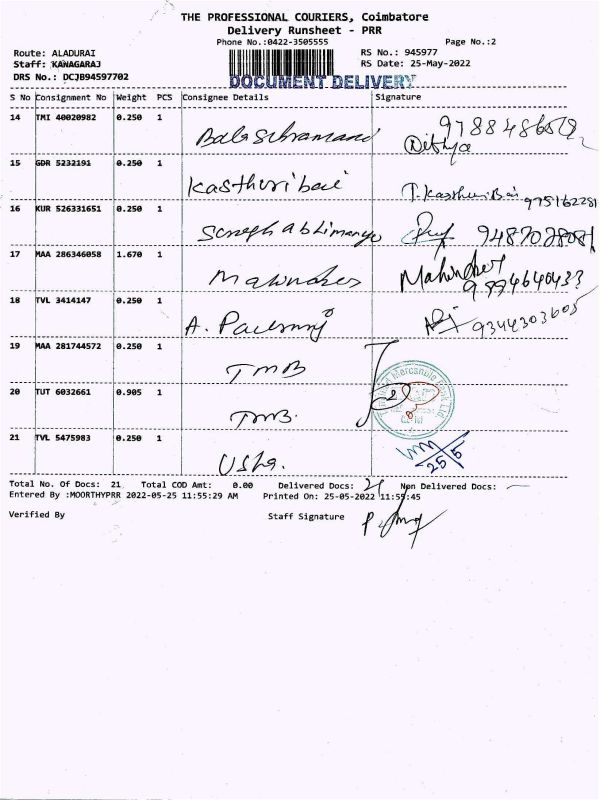 THE PROFESSIONAL COURIERS, Coimbatore
Delivery Runsheet - PRR
Phone No.:0422-3505555 Page No.:2
Route: ALADURAI RS No.: 945977
Staff: KANAGARAJ RS Date: 25-May-2022
DRS No.: DCJB94597702 DOCUMENT DELIVERY
S No Consignment No Weight PCS Consignee Details Signature
14 TMI 40020982 0.250 1
15 GDR 5232191 0.250 1 Kasthuribai T. Kasthuri Bai
16 KUR 526331651 0.250 1
17 MAA 286346058 1.670 1 Mahindhes 9994640433
18 TVL 3414147 0.250 1 9344303605
19 MAA 281744572 0.250 1 TMB
20 TUT 6032661 0.905 1 TMB.
21 TVL 5475983 0.250 1 Usha. 25/5
Total No. Of Docs: 21 Total COD Amt: 0.00 Delivered Docs: 21 Non Delivered Docs: —
Entered By :MOORTHYPRR 2022-05-25 11:55:29 AM Printed On: 25-05-2022 11:55:45
Verified By Staff Signature